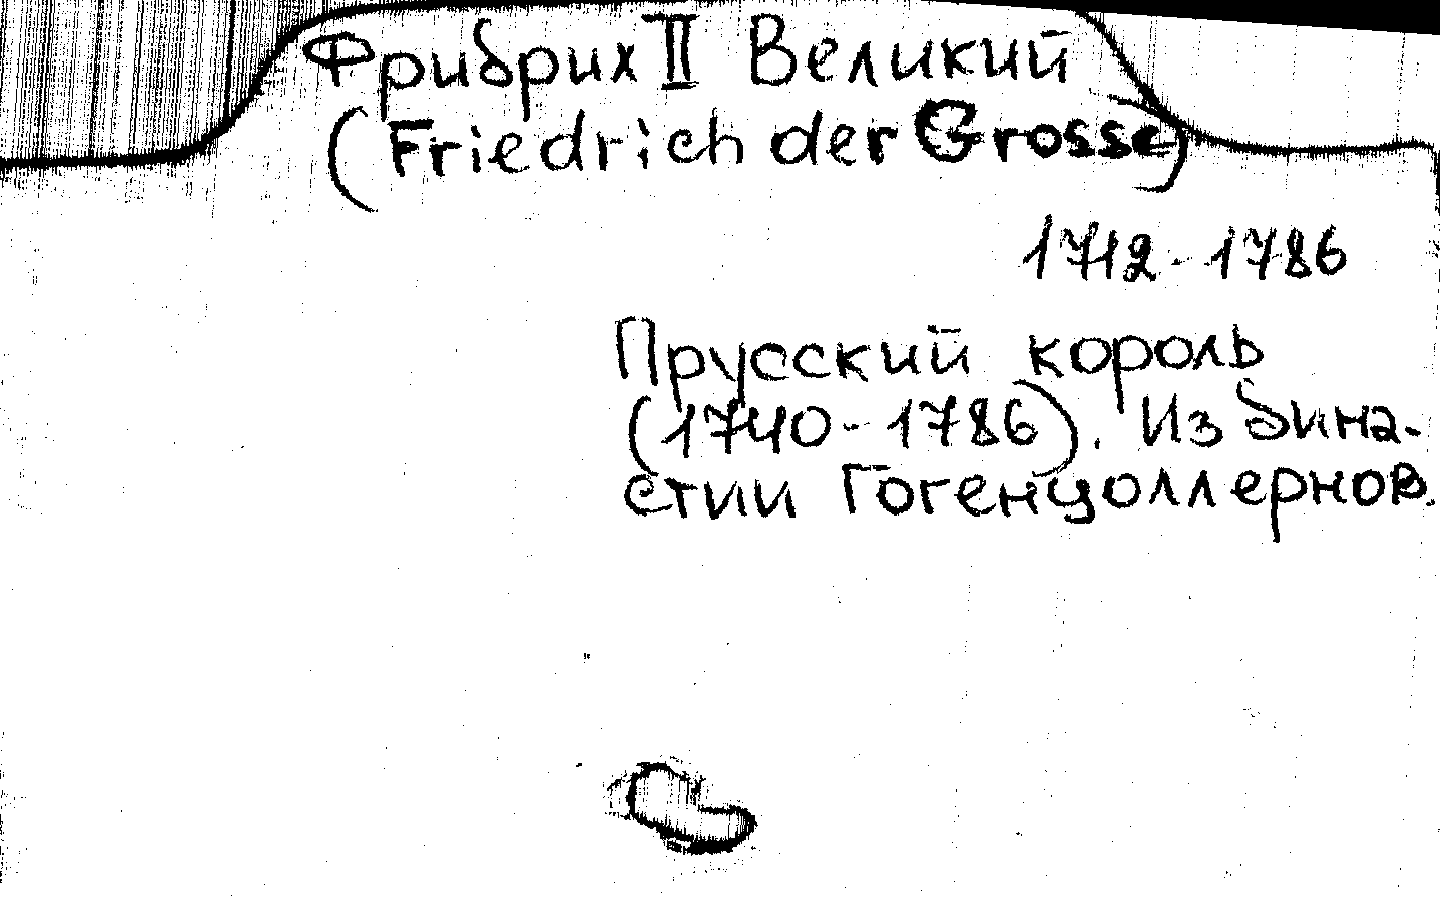 Фридрих II Великий
(Friedrich der Grosse)
1712-1786
Прусский король
(1740-1786). Из дина-
стии Гогенцоллернов.